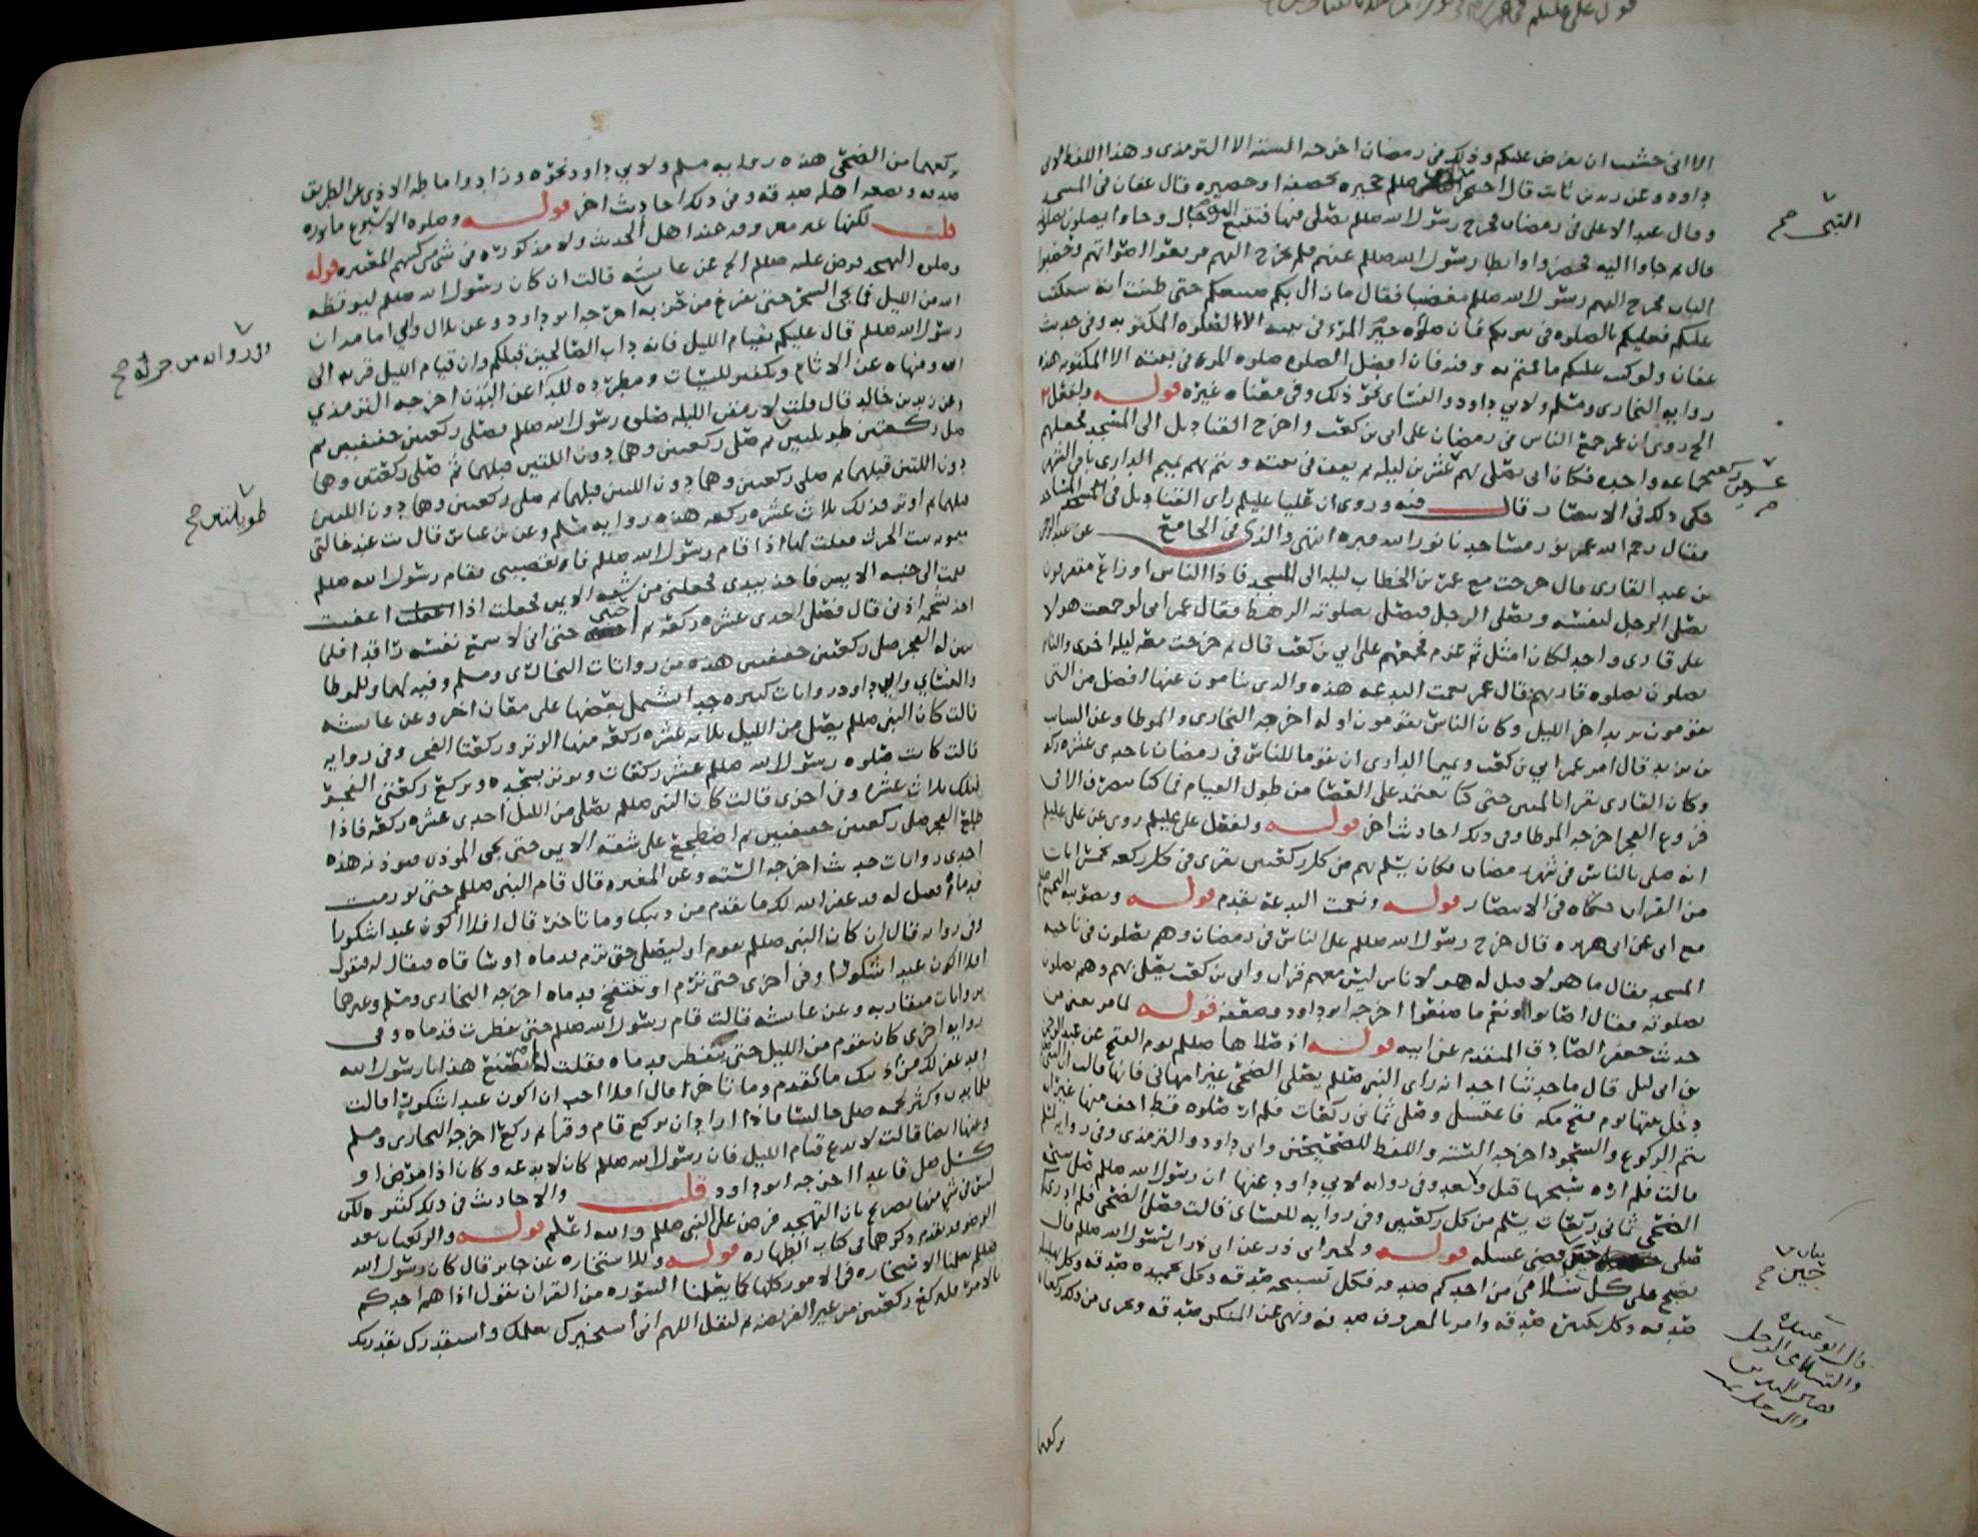 الا اني خشيت ان يفرض عليكم وذلك في رمضان اخرجه الستة الا الترمذي وهذا اللفظ لابي
داود وعن زيد بن ثابت قال احتجر صللم حجيرة بخصفة او حصيرة قال عفان في المسجد
وقال عبد الاعلى في رمضان فخرج رسول الله صللم يصلي فيها فتتبع اليه رجال وجاوا يصلون بصلاته
قال ثم جاوا اليه فحضروا وابطا رسول الله صللم عنهم فلم يخرج اليهم فرفعوا اصواتهم وحصبوا
الباب فخرج اليهم رسول الله صللم مغضبا فقال ما زال بكم صنيعكم حتى ظننت انه سيكتب
عليكم فعليكم بالصلوة في بيوتكم فان صلوة خير المرء في بيته الا الصلوة المكتوبة وفي حديث
عفان ولو كتب عليكم ما قمتم به وفيه فان افضل الصلوة صلوة المرء في بيته الا المكتوبة هذه
رواية البخاري ومسلم ولابي داود والنساي نحو ذلك وفي معناه غيره قوله ولفعل
الخ روي ان عمر جمع الناس في رمضان على ابي بن كعب واخرج القناديل الى المسجد فجعلهم
جماعة واحدة فكان ابي يصلي بهم عشرين ليلة ثم يقف في بيته ويتم بهم تميم الداري باقي الشهر
حكى ذلك في الانتصار قال فيه وروي ان عليا عليلم راى القناديل في المسجد
فقال رحم الله عمر نور مساجدنا نور الله قبره انتهى والذي في الجامع عن عبد الرحمن
بن عبد القاري قال خرجت مع عمر بن الخطاب ليلة الى المسجد فاذا الناس اوزاع متفرقون
يصلي الرجل لنفسه ويصلي الرجل فيصلي بصلوته الرهط فقال عمر اني لو جمعت هولا
على قاري واحد لكان امثل ثم عزم فجمعهم على ابي بن كعب قال ثم خرجت معه ليلة اخرى والناس
يصلون بصلوة قاريهم فقال عمر نعمت البدعة هذه والتي ينامون عنها افضل من التي
يقومون يريد اخر الليل وكان الناس يقومون اوله اخرجه البخاري والموطا وعن السايب
بن يزيد قال امر عمر ابي بن كعب وتميما الداري ان يقوما للناس في رمضان باحدى عشرة ركعة
وكان القاري يقرا بالمئين حتى كنا نعتمد على العصا من طول القيام فما كنا ننصرف الا في
فروع الفجر اخرجه الموطا وفي ذلك احاديث اخر قوله ولفعل علي عليلم روي عن علي عليلم
انه صلى بالناس في شهر رمضان فكان يسلم بهم من كل ركعتين يقرى في كل ركعة بخمس ايات
من القران حكاه في الانتصار قوله ونعمت البدعة تقدم قوله وتصويبه
مع ابي عن ابي هريرة قال خرج رسول الله صللم على الناس في رمضان وهم يصلون في ناحية
المسجد فقال ما هولا قيل له هولا ناس ليس معهم قران وابي بن كعب يصلي بهم وهم يصلون
بصلوته فقال اصابوا ونعم ما صنعوا اخرجه ابو داود وضعفه قوله لما مر يعني من
حديث جعفر الصادق المتقدم عن ابيه قوله اذ صلاها صللم يوم الفتح عن عبد الرحمن
بن ابي ليلى قال ما حدثنا احد انه راى النبي صللم يصلي الضحى غير ام هاني فانها قالت ان النبي
دخل بيتها يوم فتح مكة فاغتسل وصلى ثماني ركعات فلم ار صلوة قط اخف منها غير انه
يتم الركوع والسجود اخرجه الستة واللفظ للصحيحين وابي داود والترمذي وفي رواية لمسلم
قالت فلم اره سبحها قبل ولا بعد وفي رواية لابي داود عنها ان رسول الله صللم صلى سبحة
الضحى ثماني ركعات يسلم من كل ركعتين وفي رواية للنساي قالت فصلى الضحى فلم ادري كم
صلى حين قضى غسله قوله ولخبر ابي ذر عن ابي ذر ان رسول الله صللم قال
يصبح على كل سلامى من احدكم صدقة فكل تسبيحة صدقة وكل تحميدة صدقة وكل تهليلة
صدقة وكل تكبيرة صدقة وامر بالمعروف صدقة ونهي عن المنكر صدقة ويجزي من ذلك ركعتان
النبي صح
عشرين ركعة
بيان
حين صح
قال ابو عبيد
يركعها
يركعهما من الضحى هذه رواية مسلم ولابي داود نحوه وزاد واماطة الاذى عن الطريق
صدقة وبضعه اهله صدقة وفي ذلك احاديث اخر قوله وصلوة الاسبوع ماثورة
قلت لكنها غير معروفة عند اهل الحديث ولا مذكورة في شي من كتبهم المعتبرة قوله
وصلوة التهجد فرض عليه صللم الخ عن عايشة قالت ان كان رسول الله صللم ليوقظه
الله من الليل فما يجي السحر حتى يفرغ من حزبه اخرجه ابو داود وعن بلال وابي امامة ان
رسول الله صللم قال عليكم بقيام الليل فانه داب الصالحين قبلكم وان قيام الليل قربة الى
الله ومنهاة عن الاثام وتكفير للسيئات ومطردة للداء عن البدن اخرجه الترمذي
وعن زيد بن خالد قال قلت لارمقن الليلة صلوة رسول الله صللم فصلى ركعتين خفيفتين ثم
صلى ركعتين طويلتين ثم صلى ركعتين وهما دون اللتين قبلهما ثم صلى ركعتين وهما
دون اللتين قبلهما ثم صلى ركعتين وهما دون اللتين قبلهما ثم صلى ركعتين وهما دون اللتين
قبلهما ثم اوتر فذلك ثلاث عشرة ركعة هذه رواية مسلم وعن بن عباس قال بت عند خالتي
ميمونة بنت الحرث فقلت لها اذا قام رسول الله صللم فايقظيني فقام رسول الله صللم
فقمت الى جنبه الايسر فاخذ بيدي فجعلني من شقه الايمن فجعلت اذا اغفيت
اخذ بشحمة اذني قال فصلى احدى عشرة ركعة ثم احتبى حتى اني لاسمع نفسه راقدا فلما
تبين له الفجر صلى ركعتين خفيفتين هذه من روايات البخاري ومسلم وفيه لهما وللموطا
والنساي وابي داود روايات كثيرة جدا تشمل بعضها على معان اخر وعن عايشة
قالت كان النبي صللم يصلي من الليل ثلاث عشرة ركعة منها الوتر وركعتا الفجر وفي رواية
قالت كانت صلوة رسول الله صللم عشر ركعات ويوتر بسجدة ويركع ركعتي الفجر
فتلك ثلاث عشرة وفي اخرى قالت كان النبي صللم يصلي من الليل احدى عشرة ركعة فاذا
طلع الفجر صلى ركعتين خفيفتين ثم اضطجع على شقه الايمن حتى يجي المؤذن فيوذنه هذه
احدى روايات حديث اخرجه الستة وعن المغيرة قال قام النبي صللم حتى تورمت
قدماه فقيل له قد غفر الله لك ما تقدم من ذنبك وما تاخر قال افلا اكون عبدا شكورا
وفي رواية قال ان كان النبي صللم ليقوم او ليصلي حتى ترم قدماه او ساقاه فيقال له فيقول
افلا اكون عبدا شكورا وفي اخرى حتى ترم او تنتفخ قدماه اخرجه البخاري ومسلم وغيرهما
بروايات متقاربة وعن عايشة قالت قام رسول الله صللم حتى تفطرت قدماه وفي
رواية اخرى كان يقوم من الليل حتى تتفطر قدماه فقلت له لم تصنع هذا يا رسول الله
وقد غفر لك من ذنبك ما تقدم وما تاخر قال افلا احب ان اكون عبدا شكورا قالت
فلما بدن وكثر لحمه صلى جالسا فاذا اراد ان يركع قام وقرا ثم ركع اخرجه البخاري ومسلم
وعنها ايضا قالت لا تدع قيام الليل فان رسول الله صللم كان لا يدعه وكان اذا مرض او
كسل صلى قاعدا اخرجه ابو داود قلت والاحاديث في ذلك كثيرة لكن
ليس في شي منها تصريح بان التهجد فرض على النبي صللم والله اعلم قوله والركعتان بعد
الوضوء قد تقدم ذكرهما في كتاب الطهارة قوله وللاستخارة عن جابر قال كان رسول الله
صللم يعلمنا الاستخارة في الامور كلها كما يعلمنا السورة من القران يقول اذا هم احدكم
بالامر فليركع ركعتين من غير الفريضة ثم ليقل اللهم اني استخيرك بعلمك واستقدرك بقدرتك
وفي رواية من جزئه صح
طويلتين صح